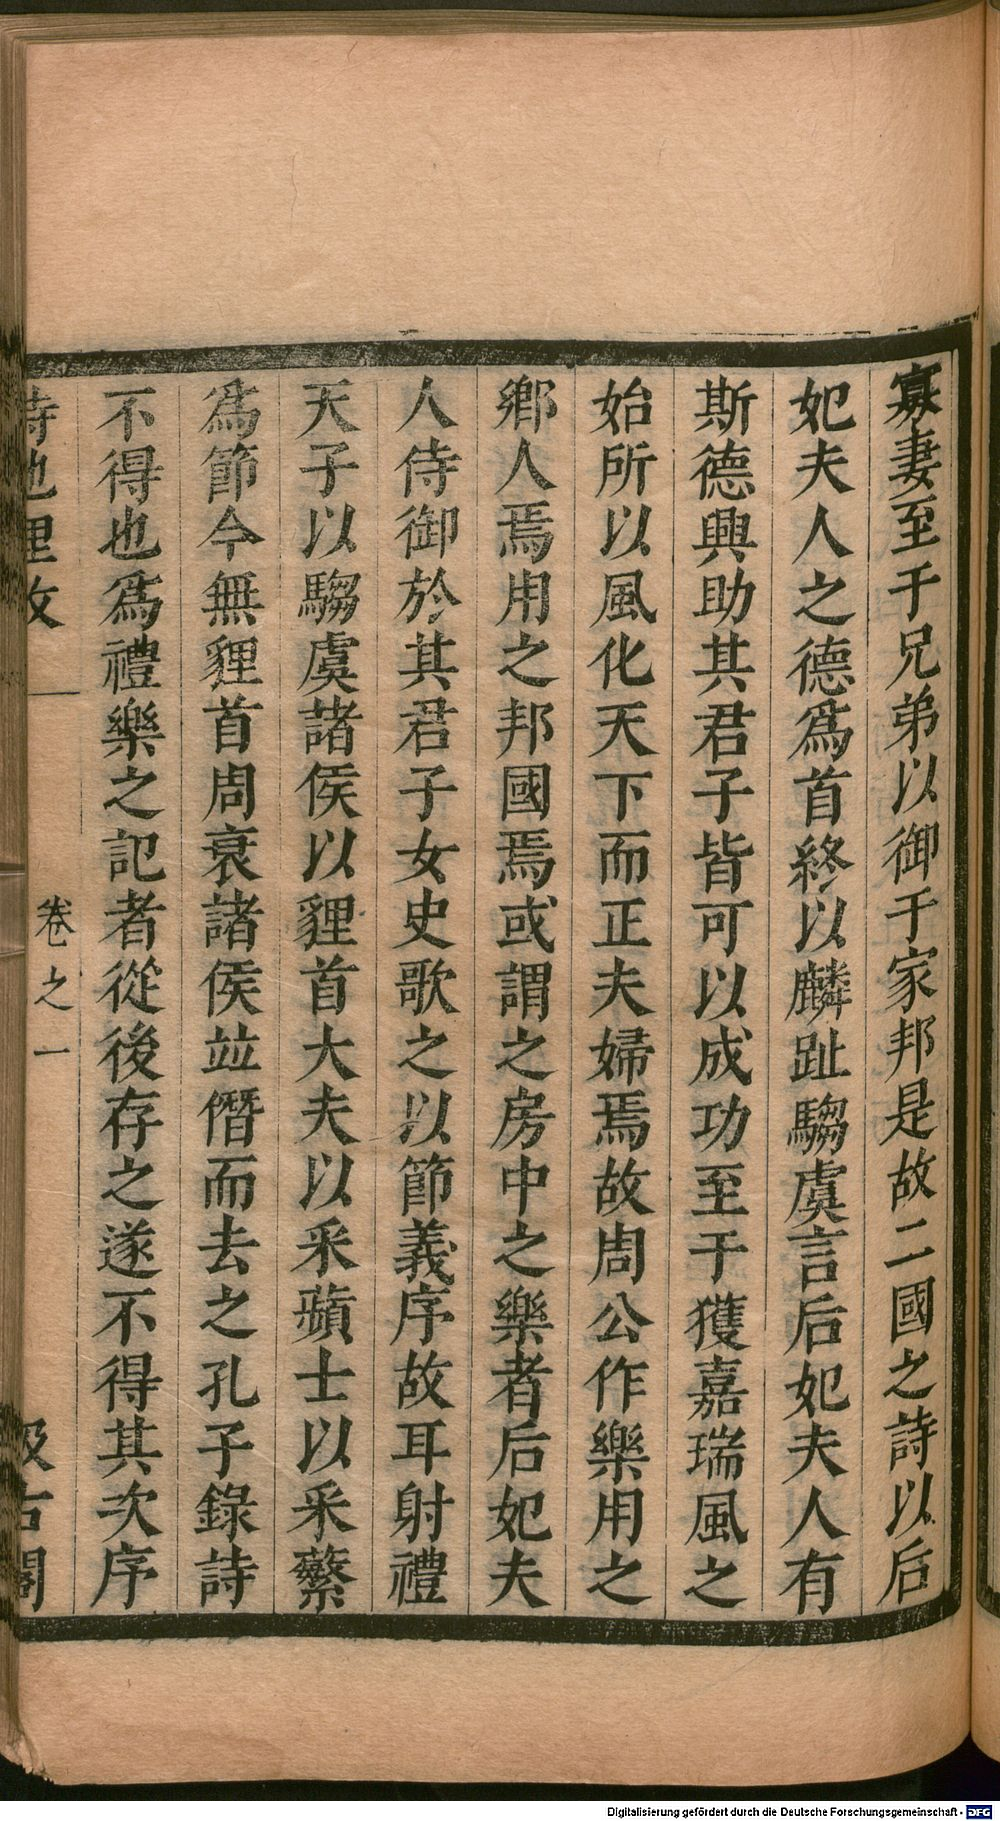 寡妻至于兄弟以御于家邦是故二國之詩以后
妃夫人之德爲首終以麟趾騶虞言后妃夫人有
斯德興助其君子皆可以成功至于獲嘉瑞風之
始所以風化天下而正夫婦焉故周公作樂用之
鄉人焉用之邦國焉或謂之房中之樂者后妃夫
人侍御於其君子女史歌之以節義序故耳射禮
天子以騶虞諸侯以貍首大夫以采蘋士以采蘩
爲節今無貍首周衰諸侯竝僭而去之孔子錄詩
不得也爲禮樂之記者從後存之遂不得其次序
詩地理攷
卷之一
汲古閣
Digitalisierung gefördert durch die Deutsche Forschungsgemeinschaft - DFG